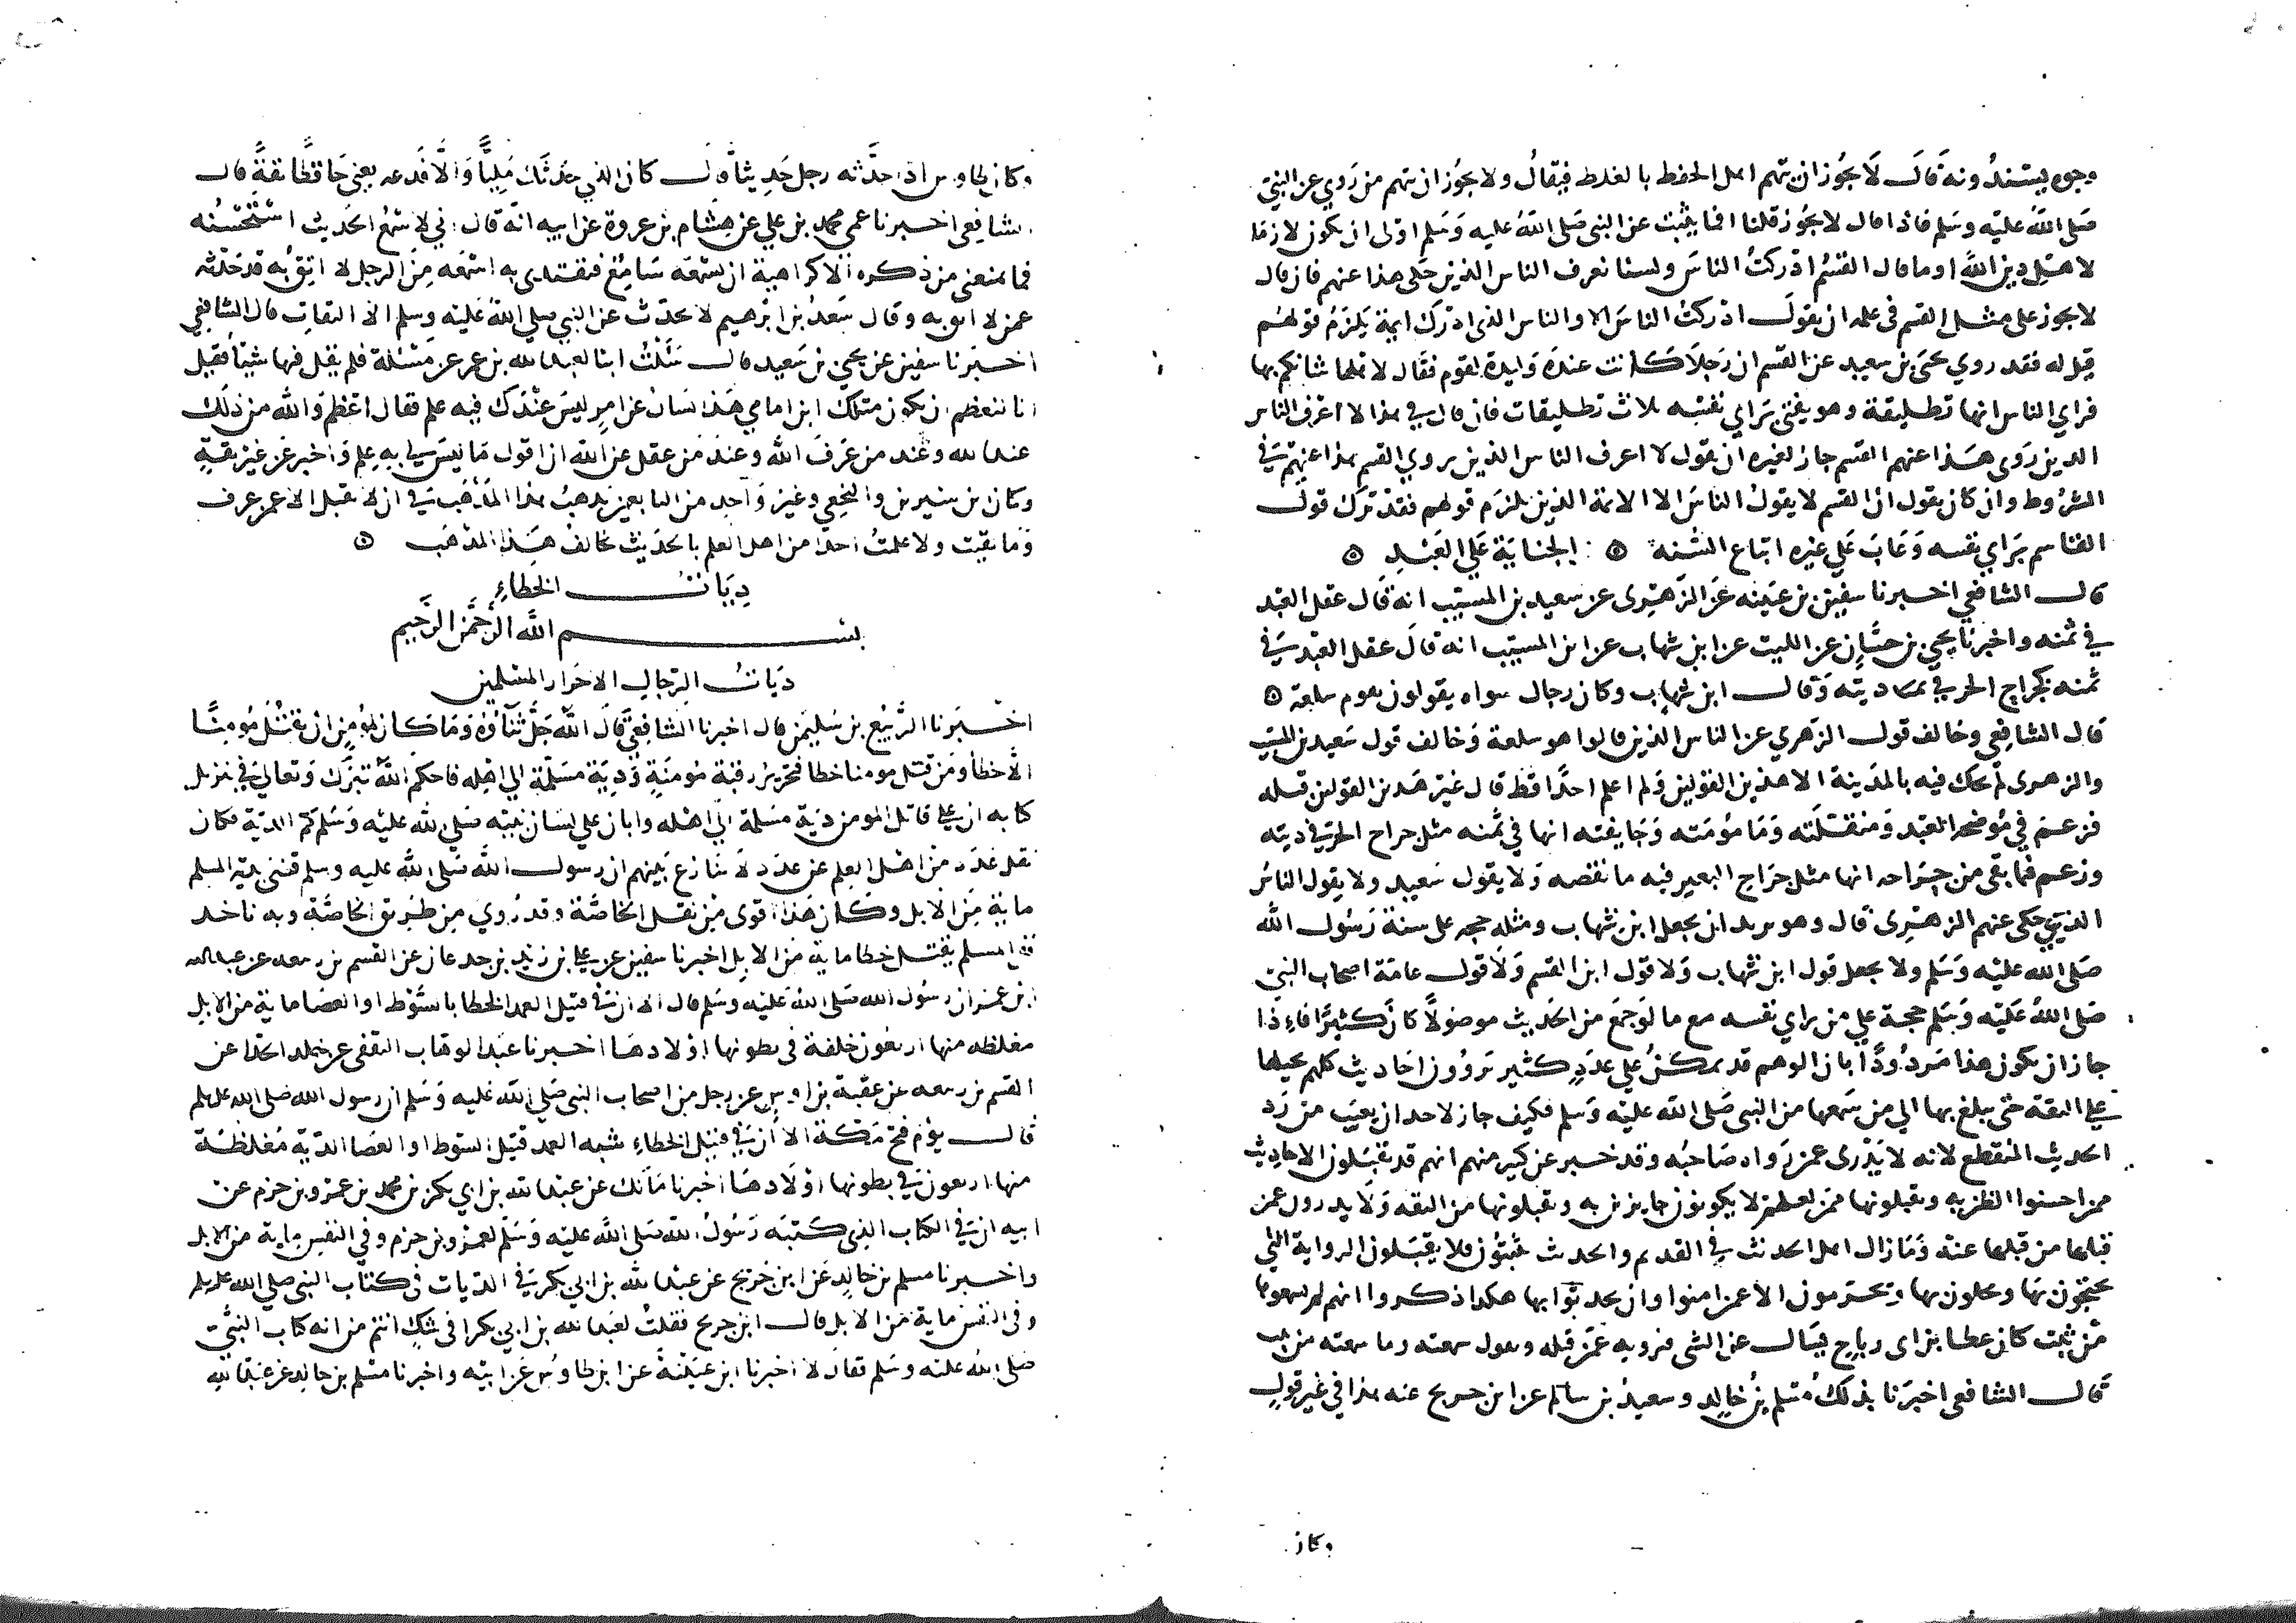 وجوه يسندونه قال لا يجوز ان يتهم اهل الحفظ بالغلط فيقال ولا يجوز ان يتهم من روي عن النبي
صلى الله عليه وسلم فاذا قال لا يجوز قلنا افما يثبت عن النبي صلى الله عليه وسلم اولى ان يكون لازما
لاهل دين الله او ما قال القسم ادركت الناس ولسنا نعرف الناس الذين حكى هذا عنهم فان قال
لا يجوز على مثل القسم في علمه ان يقول ادركت الناس الا والناس الذي ادرك ايمة يلزم قولهم
قيل له فقد روي يحيى بن سعيد عن القسم ان رجلا كانت عنده وليدة لقوم فقال لاهلها شانكم بها
فراي الناس انها تطليقة وهو يفتي براي نفسه ثلاث تطليقات فان قال في هذا لا اعرف الناس
الذين روى هذا عنهم القسم جاز لغيره ان يقول لا اعرف الناس الذين يروي القسم هذا عنهم في
الشروط وان كان يقول ان القسم لا يقول الناس الا الائمة الذين يلزم قولهم فقد ترك قول
القاسم براي نفسه وعاب على غيره اتباع السنة الجناية على العبد
قال الشافعي اخبرنا سفين بن عيينه عن الزهري عن سعيد بن المسيب انه قال عقل العبد
في ثمنه واخبرنا يحيى بن حسان عن الليث عن ابن شهاب عن ابن المسيب انه قال عقل العبد في
ثمنه كجراح الحر في ديته وقال ابن شهاب وكان رجال سواه يقولون يقوم سلعة
قال الشافعي وخالف قول الزهري عن الناس الذين قالوا هو سلعة وخالف قول سعيد بن المسيب
والزهري لم يحك فيه بالمدينة الا هذين القولين ولم اعلم احدا قط قال غير هذين القولين قبله
فزعم في موضحة العبد ومنقلته ومامومته وجايفته انها في ثمنه مثل جراح الحر في ديته
وزعم فيما بقي من جراحه انها مثل جراح البعير فيه ما نقصه ولا يقول سعيد ولا يقول الناس
الذين حكى عنهم الزهري قال وهو يريد ان يجعل ابن شهاب ومثله حجه على سنة رسول الله
صلى الله عليه وسلم ولا يجعل قول ابن شهاب ولا قول ابن القسم ولا قول عامة اصحاب النبي
صلى الله عليه وسلم حجة على من راي نفسه مع ما لو جمع من الحديث موصولا كان كثيرا فاذا
جاز ان يكون هذا مردودا بان الوهم قد يمكن على عدد كثير يروون احاديث كلهم يحيلها
على الثقة حتى يبلغ بها الى من سمعها من النبي صلى الله عليه وسلم فكيف جاز لاحد ان يعيب من رد
الحديث المنقطع لانه لا يدرى عمن رواه صاحبه وقد خبر عن كثير منهم انهم قد يقبلون الاحاديث
ممن احسنوا الظن به ويقبلونها ممن لعلهم لا يكونون خابرين به ويقبلونها من الثقة ولا يدرون عمن
قبلها من قبلها عنه وما زال اهل الحديث في القديم والحديث يثبتون فلا يقبلون الرواية التي
يحتجون بها ويحلون بها ويحرمون الا عمن امنوا وان يحدثوا بها هكذا ذكروا انهم لم يسمعوها
من ثبت كان عطا بن ابي رباح يسال عن الشي فيرويه عمن قبله ويقول سمعته وما سمعته من ثبت
قال الشافعي اخبرنا بذلك مسلم بن خالد وسعيد بن سالم عن ابن جريج عنه هذا في غير قول
وكان
وكان طاوس اذا حدثه رجل حديثا قال كان الذي حدثك مليا والا فدعه يعني حافظا ثقة قال
الشافعي اخبرنا عمي محمد بن علي عن هشام بن عروة عن ابيه انه قال اني لاسمع الحديث استحسنه
فما يمنعني من ذكره الا كراهية ان يسمعه سامع فيقتدى به اسمعه من الرجل لا اثق به قد حدثه
عمن لا اثق به وقال سعد بن ابرهيم لا يحدث عن النبي صلى الله عليه وسلم الا الثقات قال الشافعي
اخبرنا سفين عن يحيى بن سعيد قال سئلت ابنا لعبد الله بن عمر عن مسئلة فلم يقل فيها شيئا فقيل
انا لنعظم ان يكون مثلك ابن امامي هذا تسال عن امر ليس عندك فيه علم فقال اعظم والله من ذلك
عند الله وعند من عرف الله وعند من عقل عن الله ان اقول ما ليس لي به علم واخبر عن غير ثقة
وكان بن سيرين والنخعي وغير واحد من التابعين يذهب هذا المذهب في ان لا يقبل الا عمن عرف
وما لقيت ولا علمت احدا من اهل العلم بالحديث يخالف هذا المذهب
ديات الخطاء
بسم الله الرحمن الرحيم
ديات الرجال الاحرار المسلمين
اخبرنا الربيع بن سليمن قال اخبرنا الشافعي قال الله جل ثناؤه وما كان لمومن ان يقتل مومنا
الا خطا ومن قتل مومنا خطا فتحرير رقبة مومنة ودية مسلمة الى اهله فاحكم الله تبرك وتعالى في تنزيل
كتابه ان على قاتل المومن دية مسلمة الى اهله وابان على لسان نبيه صلى الله عليه وسلم كم الدية فكان
نقل عدد من اهل العلم عن عدد لا تنازع بينهم ان رسول الله صلى الله عليه وسلم قضى بدية المسلم
ماية من الابل وكان هذا اقوى من نقل الخاصة وقد روي من طريق الخاصة وبه ناخذ
ففي المسلم يقتل خطا ماية من الابل اخبرنا سفين عن علي بن زيد بن جدعان عن القسم بن ربيعه عن عبد الله
ابن عمر ان رسول الله صلى الله عليه وسلم قال الا ان في قتيل العمد الخطا بالسوط او العصا ماية من الابل
مغلظه منها اربعون خلفة في بطونها اولادها اخبرنا عبد الوهاب الثقفي عن خالد الحذا عن
القسم بن ربيعه عن عقبة بن اوس عن رجل من اصحاب النبي صلى الله عليه وسلم ان رسول الله صلى الله عليه وسلم
قال يوم فتح مكة الا ان في قتيل الخطاء شبه العمد قتيل السوط او العصا الدية مغلظة
منها اربعون في بطونها اولادها اخبرنا مالك عن عبد الله بن ابي بكر بن محمد بن عمرو بن حزم عن
ابيه ان في الكتاب الذي كتبه رسول الله صلى الله عليه وسلم لعمرو بن حزم وفي النفس ماية من الابل
واخبرنا مسلم بن خالد عن ابن جريج عن عبد الله بن ابي بكر في الديات في كتاب النبي صلى الله عليه وسلم
وفي النفس ماية من الابل قال ابن جريج فقلت لعبد الله بن ابي بكر افي شك انتم من انه كتاب النبي
صلى الله عليه وسلم فقال لا اخبرنا ابن عيينة عن ابن طاوس عن ابيه واخبرنا مسلم بن خالد عن عبد الله